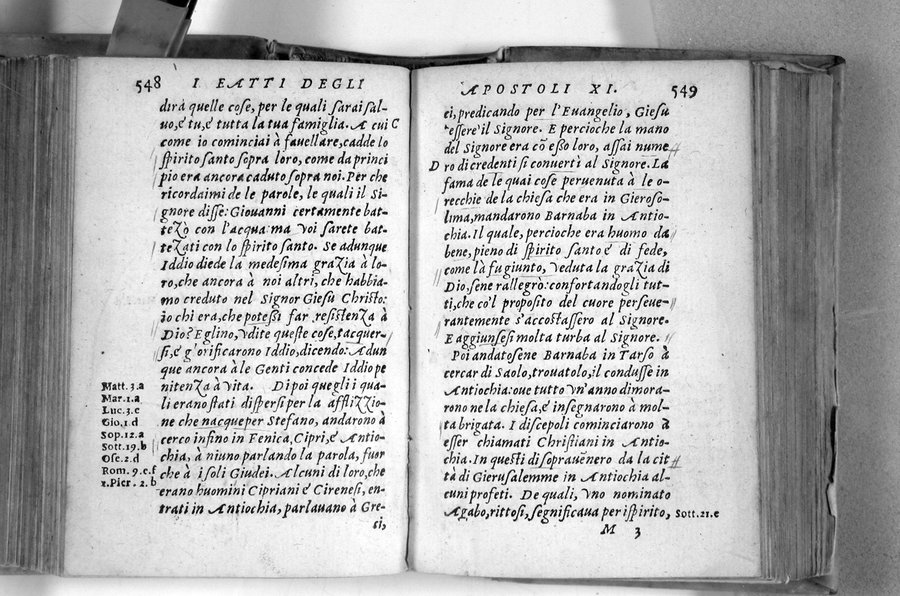 548 I FATTI DEGLI
dirà quelle cose, per le quali sarai sal-
uo, e tu, e tutta la tua famiglia. A cui C
come io cominciai à fauellare, cadde lo
spirito santo sopra loro, come da princi
pio era ancora caduto sopra noi. Per che
ricordaimi de le parole, le quali il Si-
gnore disse: Giouanni certamente bat-
tezò con l'acqua: ma voi sarete bat-
tezati con lo spirito santo. Se adunque
Iddio diede la medesima grazia à lo-
ro, che ancora à noi altri, che habbia-
mo creduto nel Signor Giesù Christo:
io chi era, che potessi far resistenza à
Dio? Eglino, vdite queste cose, tacquer-
si, e glorificarono Iddio, dicendo: Adun
que ancora à le Genti concede Iddio pe
nitenza à vita. Dipoi quegli i qua-
li erano stati dispersi per la afflizzio-
ne che nacque per Stefano, andarono à
cerco infino in Fenica, Cipri, e Antio-
chia, à niuno parlando la parola, fuor
che à i soli Giudei. Alcuni di loro, che
erano huomini Cipriani e Cirenesi, en-
trati in Antiochia, parlauano à Gre-
si,
Matt. 3.a
Mar. 1.a
Luc. 3.c
Gio. 1.d
Sop. 12.a
Sott. 19.b
Ose. 2.d
Rom. 9.e.f
1.Pier. 2.b
APOSTOLI XI. 549
ci, predicando per l'Euangelio, Giesù
essere il Signore. E percioche la mano
del Signore era cō esso loro, assai nume
D ro di credenti si conuertì al Signore. La
fama de le quai cose peruenuta à le o-
recchie de la chiesa che era in Gieroso-
lima, mandarono Barnaba in Antio-
chia. Il quale, percioche era huomo da
bene, pieno di spirito santo e di fede,
come là fu giunto, veduta la grazia di
Dio, sene rallegrò: confortandogli tut-
ti, che co'l proposito del cuore perseue-
rantemente s'accostassero al Signore.
E aggiunsesi molta turba al Signore.
Poi andatosene Barnaba in Tarso à
cercar di Saolo, trouatolo, il condusse in
Antiochia: oue tutto vn'anno dimora-
rono ne la chiesa, e insegnarono à mol-
ta brigata. I discepoli cominciarono à
esser chiamati Christiani in Antio-
chia. In questi dì soprauēnero da la cit
tà di Gierusalemme in Antiochia al-
cuni profeti. De quali, vno nominato
Agabo, rittosi, significaua per ispirito, Sott. 21.e
M 3